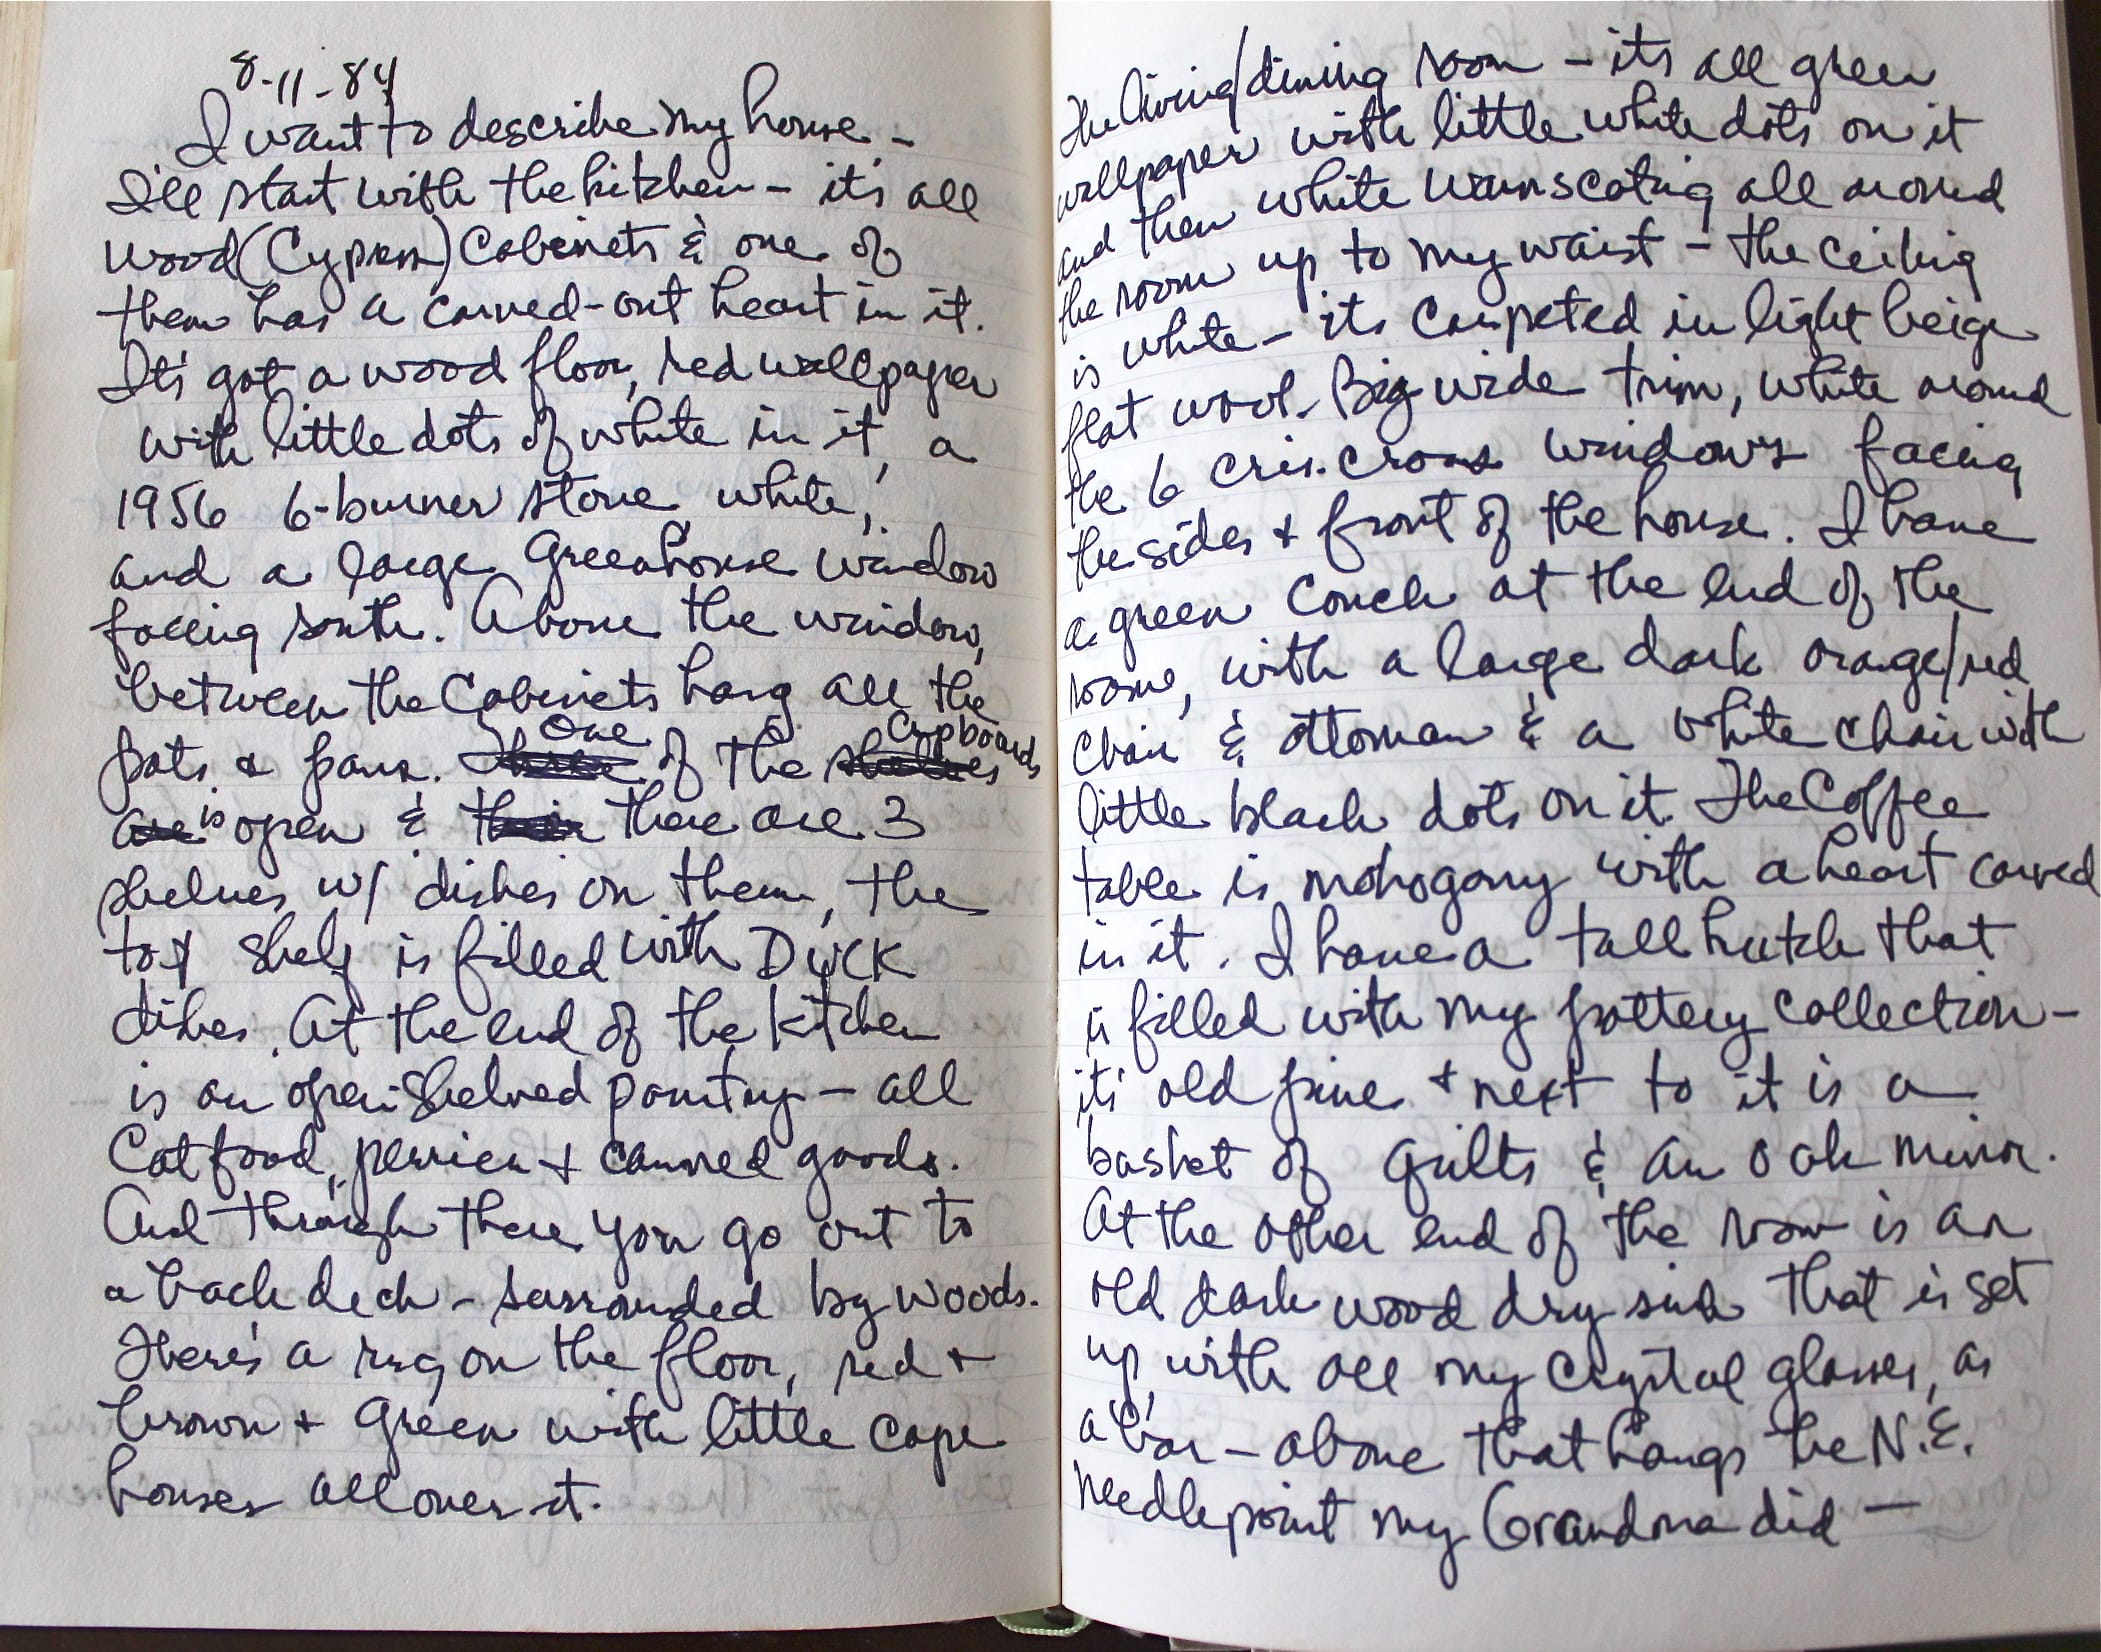 8-11-84
I want to describe my house -
I'll start with the kitchen - it's all
wood (Cypress) Cabinets & one of
them has a carved-out heart in it.
It's got a wood floor, red wallpaper
with little dots of white in it, a
1956 6-burner stove white,
and a large Greenhouse window
facing south. Above the window,
between the Cabinets hang all the
pots & pans. One of the Cupboards
is open & there are 3
shelves w/ dishes on them, the
top shelf is filled with DUCK
dishes. At the end of the kitchen
is an open shelved pantry - all
Cat food, perrier & canned goods.
And through there you go out to
a back deck - surrounded by woods.
There's a rug on the floor, red +
brown + green with little cape
houses all over it.
The living/dining room - its all green
wallpaper with little white dots on it
and then white wainscoting all around
the room up to my waist - the ceiling
is white - its carpeted in light beige
flat wool. Big wide trim, white around
the 6 cris-cross windows facing
the sides + front of the house. I have
a green couch at the end of the
room, with a large dark orange/red
chair & ottoman & a white chair with
little black dots on it. The Coffee
table is mahogany with a heart carved
in it. I have a tall hutch that
is filled with my pottery collection -
it's old pine + next to it is a
basket of quilts & an oak mirror.
At the other end of the room is an
old dark wood dry sink that is set
up with all my crystal glasses, as
a bar - above that hangs the N.E.
needlepoint my Grandma did -